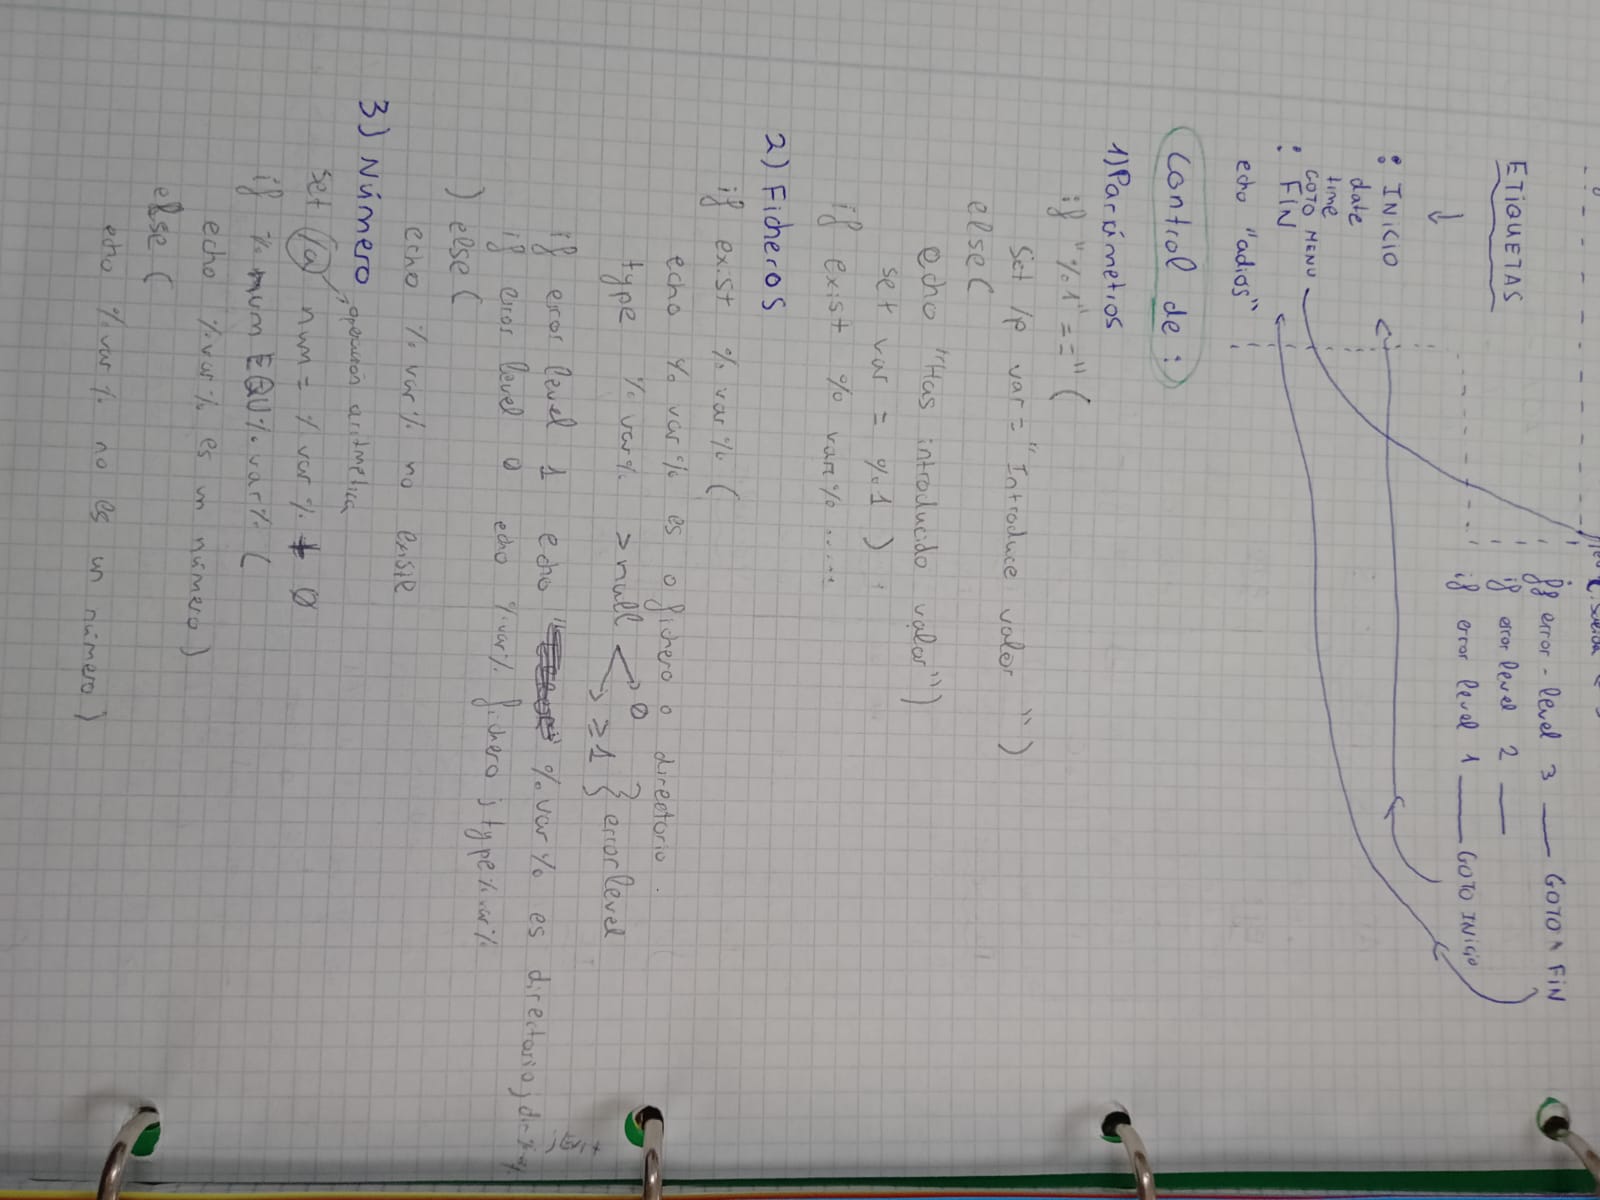 ETIQUETAS
: INICIO
date
time
GOTO MENU
: FIN
echo "adios"
if error-level 3 — GOTO FIN
if error level 2 —
if error level 1 — GOTO INICIO
Control de:
1) Parámetros
if "%1"==" (
Set /p var="Introduce valor ")
else (
echo "Has introducido valor")
set var = %1 )
if exist % var% .....
2) Ficheros
if exist % var% (
echo % var% es o fichero o directorio.
type % var% > null 0 ≥1 } errorlevel
if error level 1 echo % var% es directorio; dir
if error level 0 echo %var% fichero ; type % var%
) else (
echo % var% no existe
3) Número
operación aritmética
set /a num = % var% + 0
if % num EQU % var% (
echo % var% es un número)
else (
echo % var% no es un número)